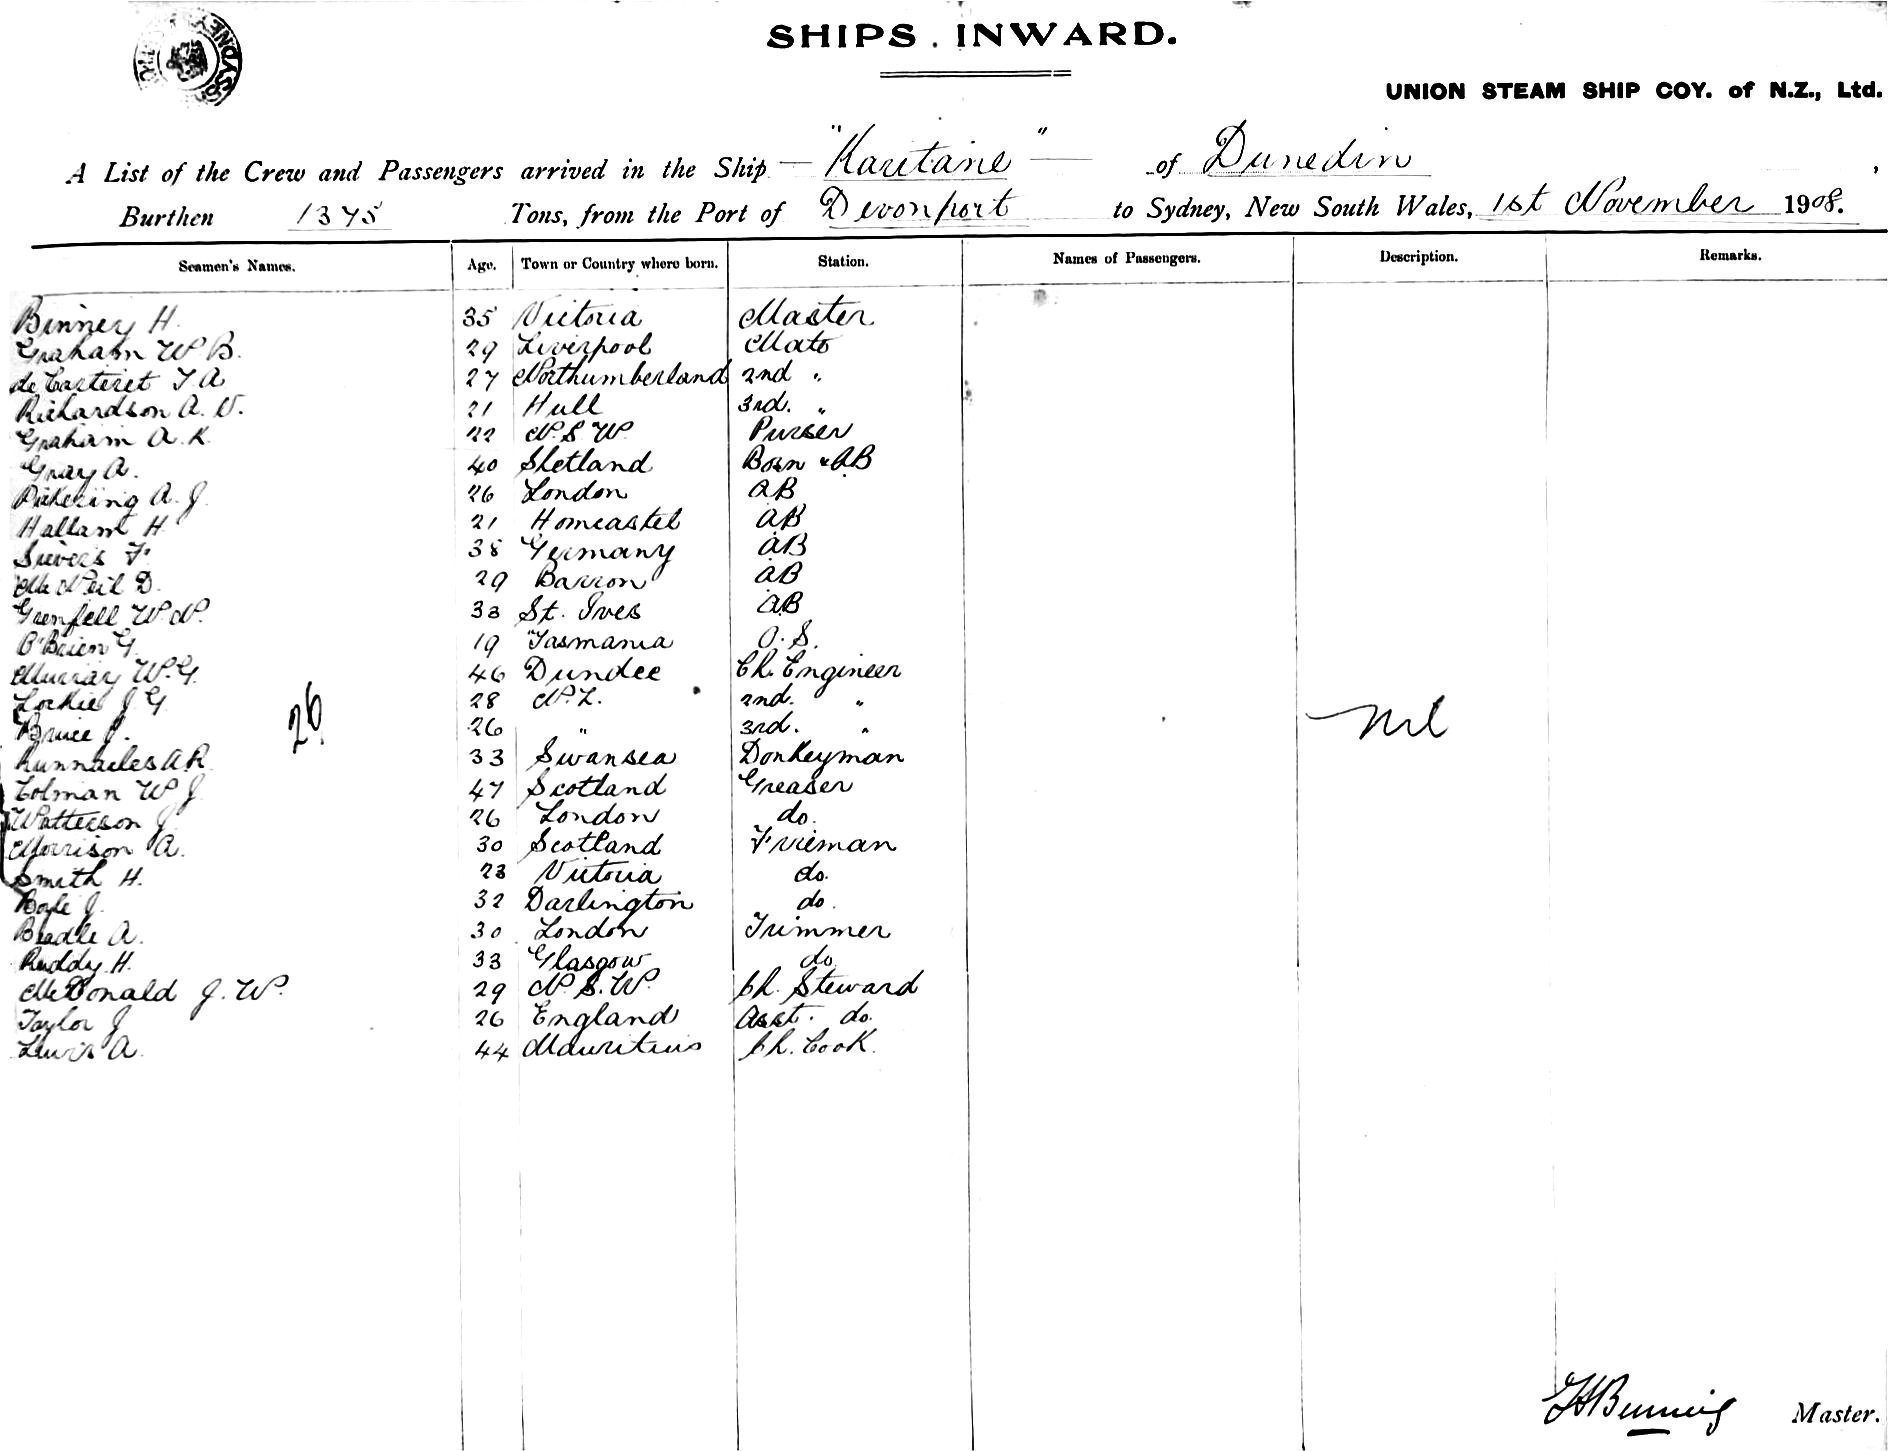 SYDNEY
SHIPS. INWARD.
UNION STEAM SHIP COY. of N.Z., Ltd.
A List of the Crew and Passengers arrived in the Ship "Karitane" of Dunedin,
Burthen 1375 Tons, from the Port of Devonport to Sydney, New South Wales, 1st November 1908.
Seamen's Names. Age. Town or Country where born. Station. Names of Passengers. Description. Remarks.
Binney H. 35 Victoria Master
Graham W B. 29 Liverpool Mate
de Carteret T A 27 Northumberland 2nd "
Richardson A. V. 21 Hull 3rd. "
Graham A. K. 22 N. S. W. Purser
Gray A. 40 Shetland Bosn & AB
Pickering A. J. 26 London AB
Hallam H. 21 Horncastel AB
Sievers F. 38 Germany AB
McNeil D. 29 Barron AB
Grenfell W. N. 33 St. Ives AB
O'Brien G. 19 Tasmania O. S.
Murray W. G. 46 Dundee Ch. Engineer
Lockie J G. 28 N. Z. 2nd. "
Bruce P. 26 " 3rd. "
26
Nil
Runnacles A R. 33 Swansea Donkeyman
Colman W J. 47 Scotland Greaser
Watterson J. 26 London do.
Morrison A. 30 Scotland Frieman
Smith H. 23 Victoria do.
Boyle J. 32 Darlington do.
Beadle A. 30 London Trimmer
Ruddy H. 33 Glasgow do.
McDonald J. W. 29 N. S. W. Ch. Steward
Taylor J 26 England Asst. do.
Lewis A. 44 Mauritius Ch. Cook.
Master.